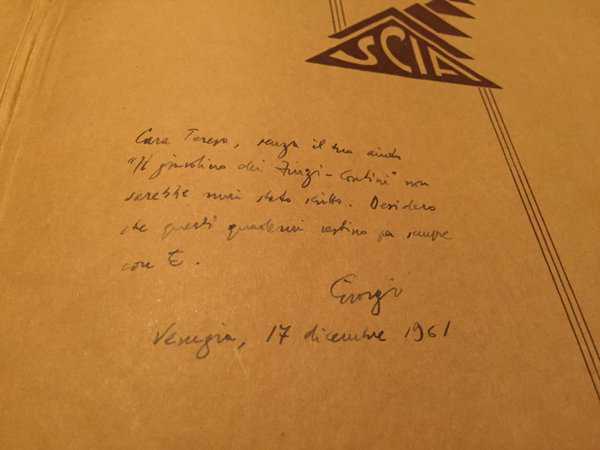 SCIA
Cara Teresa, senza il tuo aiuto
"Il giardino dei Finzi-Contini" non
sarebbe mai stato scritto. Desidero
che questi quaderni restino per sempre
con Te.
Giorgio
Venezia, 17 dicembre 1961